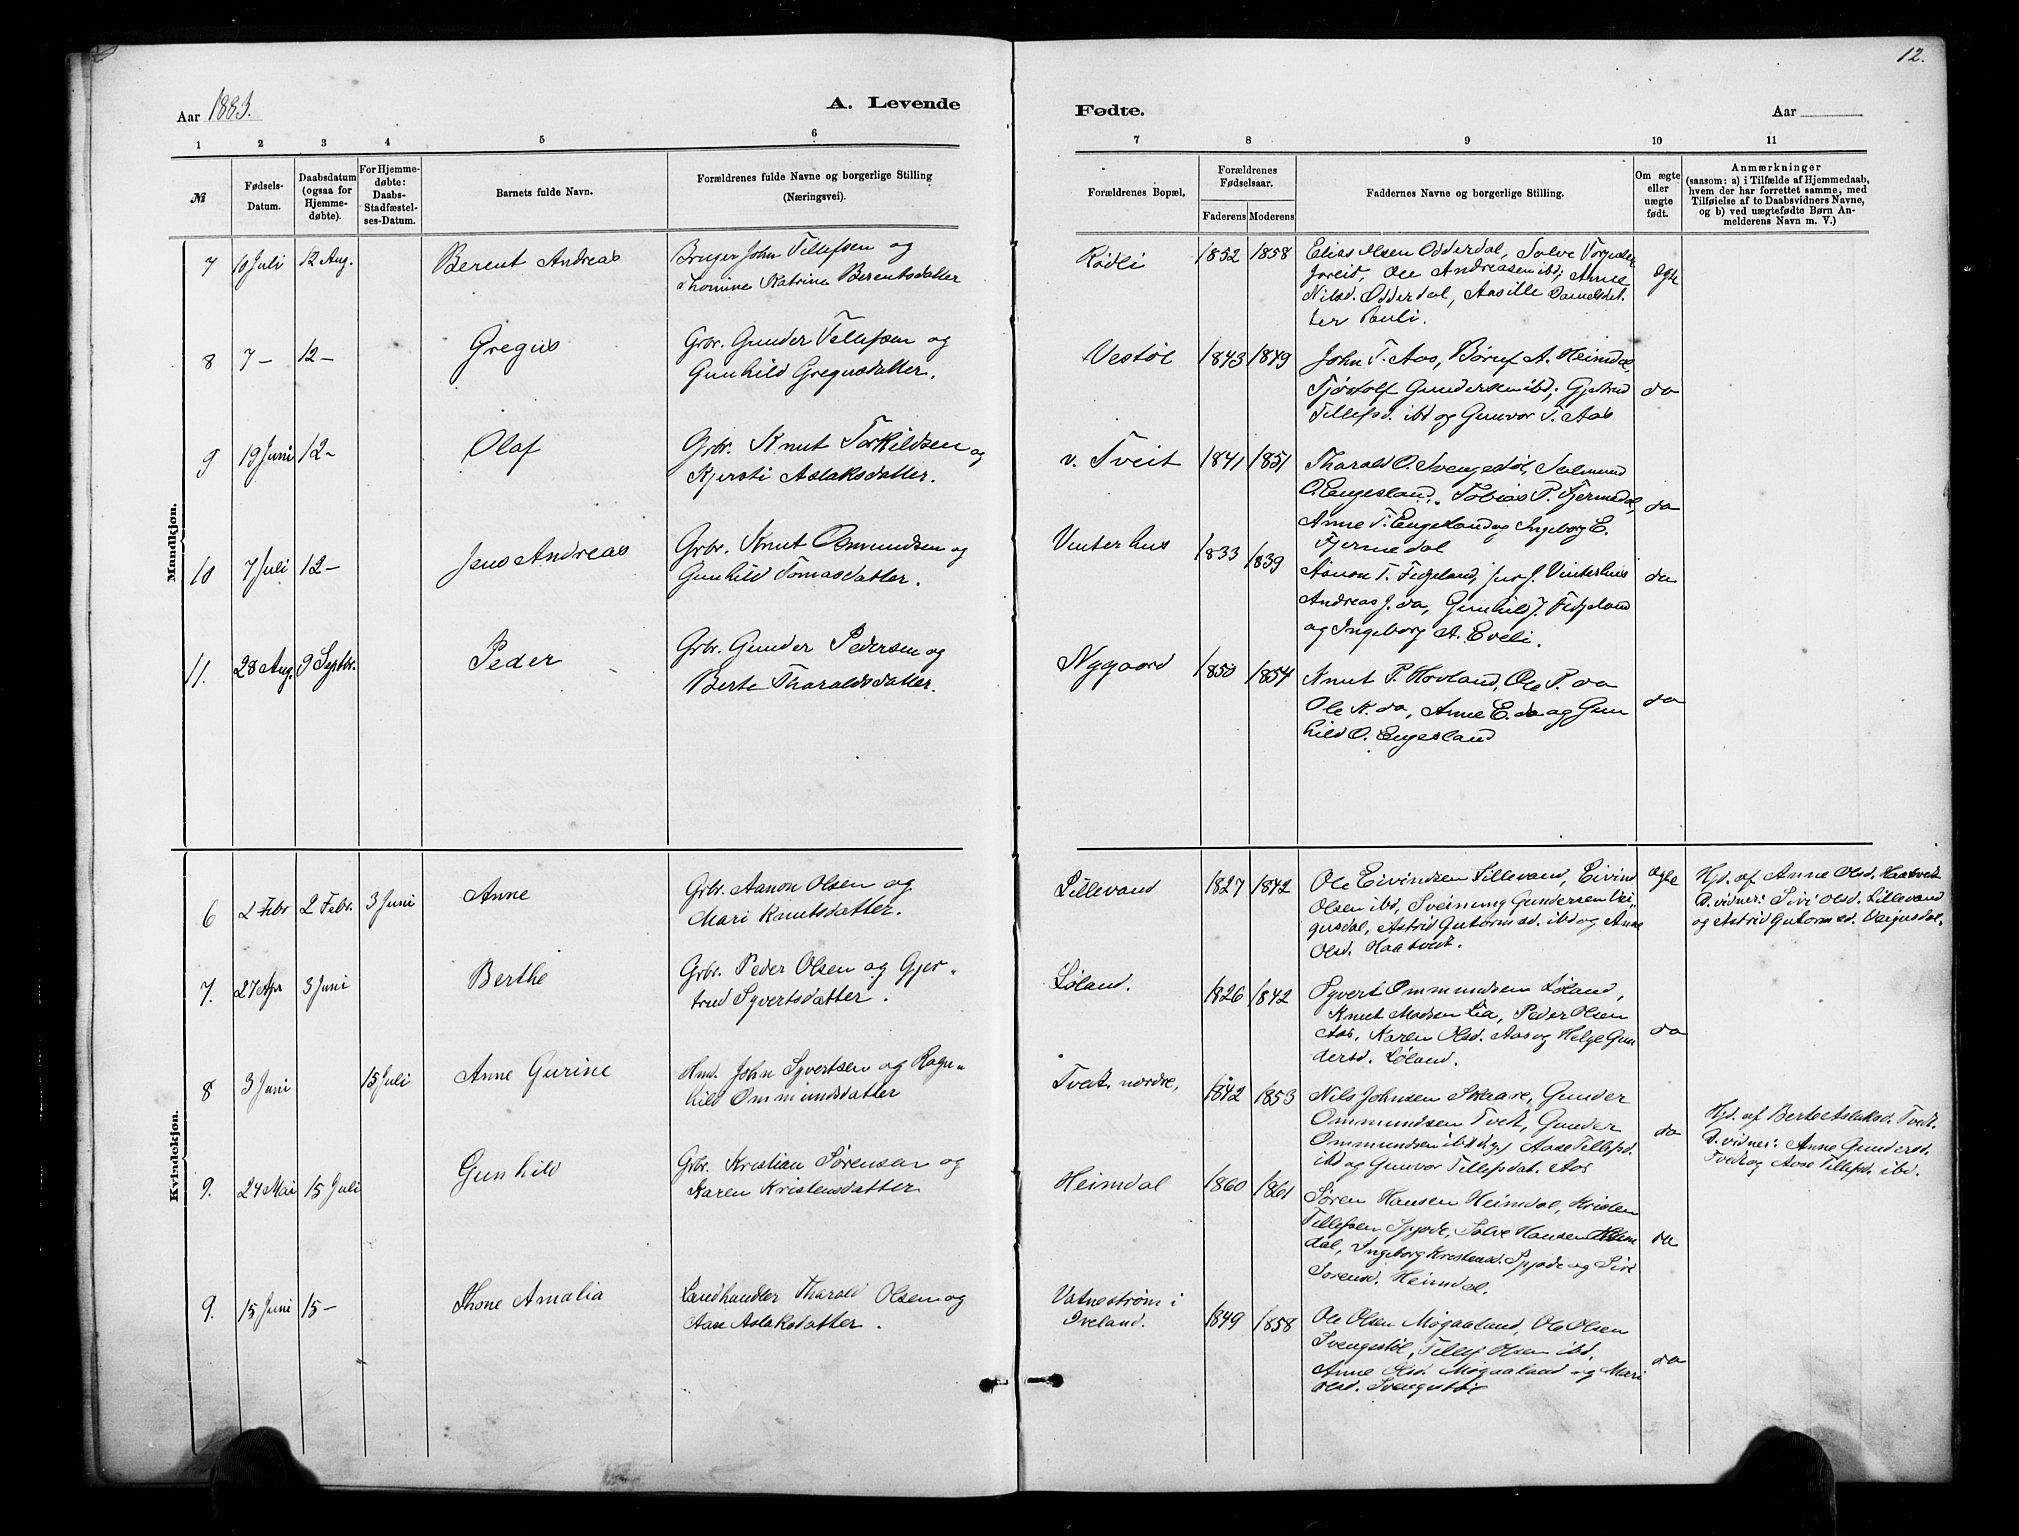 12.
Aar 1883.
A. Levende
Fødte.
Aar
1 2 3 4 5 6 7 8 9 10 11
№
Fødsels-
Datum.
Daabsdatum
(ogsaa for
Hjemme-
døbte).
For Hjemme-
døbte:
Daabs-
Stadfæstel-
ses-Datum.
Barnets fulde Navn.
Forældrenes fulde Navne og borgerlige Stilling
(Næringsvei).
Forældrenes Bopæl.
Forældrenes
Fødselsaar.
Faderens Moderens
Faddernes Navne og borgerlige Stilling.
Om ægte
eller
uægte
født.
Anmærkninger
(saasom: a) i Tilfælde af Hjemmedaab,
hvem der har forrettet samme, med
Tilføielse af to Daabsvidners Navne,
og b) ved uægtefødte Børn An-
melderens Navn m. V.)
Mandkjøn.
7 10 Juli 12 Aug. Berent Andreas
Bruger John Tellefsen og
Thomine Katrine Berentsdatter
1852 1858
Elias Olsen Odderdal, Salve
Ole Andreasen ibd; Anne
Nilsd. Odderdal, Aasille Danielsdat
ter
ægte
8 7 – 12 – Gregus
Grbr. Gunder Tellefsen og
Gunhild Gregusdatter.
Vestøl 1843 1849
John T. Aas, A. Heimdal,
Tjøstolf Gundersen ibd;
Tellefsd. ibd og Gunvor T. Aas
do
9 19 Juni 12 – Olaf
Grbr. Knut Torkildsen og
Kjersti Aslaksdatter.
v. Tveit 1841 1851
Tharald O. Svengestøl, Salmund
O. Engesland, Tobias P. Fjermedal,
Anne T. Engesland og Ingeborg E.
Fjermedal
do
10 7 Juli 12 – Jens Andreas
Grbr. Knut Osmundsen og
Gunhild Tomasdatter.
Vinterhus 1833 1839
Aanon T. Fidjeland, J. Vinterhus
Andreas J. do, Gunhild J. Fidjeland
og Ingeborg A. Eveli.
do
11. 28 Aug. 9 Septbr. Peder
Grbr. Gunder Pedersen og
Berte Tharaldsdatter.
Nygaard 1850 1854
Knut P. Hovland, Ole P. do
Ole K. do, Anne E. do og Gun
hild O. Engesland
do
Kvindekjøn.
6 2 Febr 2 Febr. 3 Juni Anne
Grbr. Aanon Olsen og
Mari Knutsdatter.
Lillevand 1827 1842
Ole Eivindsen Lillevand, Eivind
Olsen ibd, Sveinung Gundersen Vei-
gusdal, Astrid Gutormsd. ibd og Anne
Olsd. Haatvedt.
ægte
Hjd. af Anne Olsd. Haatvedt
D. vidner: Sivi Olsd. Lillevand
og Astrid Gutormsd. Veigusdal.
7. 27 Apr 3 Juni Berthe
Grbr. Peder Olsen og Gjer-
trud Syvertsdatter.
Løland. 1826 1842
Syvert Ommundsen Løland,
Knut Madsen Lia, Peder Olsen
Aas, Karen Olsd. Aas og Helge Gun
dersd. Løland.
do
8 3 Juni 15 Juli Anne Gurine
Hmd. John Syvertsen og Ragn-
hild Ommundsdatter
Tvedt, nordre, 1842 1853
Nils Johnsen Skaare, Gunder
Ommundsen Tvedt, Gunder
Ommundsen ibd Aase Tellefsd.
ibd og Gunvor Tellefsdat. Aas
do
Hjd. af Berte Aslaksd. Tvedt.
D. vidner: Anne Gundersd.
Tvedt og Aase Tellefsd. ibd.
9. 24 Mai 15 Juli Gunhild
Grbr. Kristian Sørensen og
Karen Kristensdatter
Heimdal 1860 1861
Søren Hansen Heimdal, Kristen
Tellefsen Salve Hansen Heim
dal, Ingeborg Kristensd. og Siri
Sørensd. Heimdal.
do
9. 15 Juni 15 – Thone Amalia
Landhandler Tharald Olsen og
Aase Aslaksdatter.
Vatnestrøm i
Iveland. 1849 1858
Ole Olsen Møgaaland, Ole Olsen
Svengestøl, Tellef Olsen ibd,
Anne Olsd. Møgaaland og Mari
Olsd. Svengestøl
do